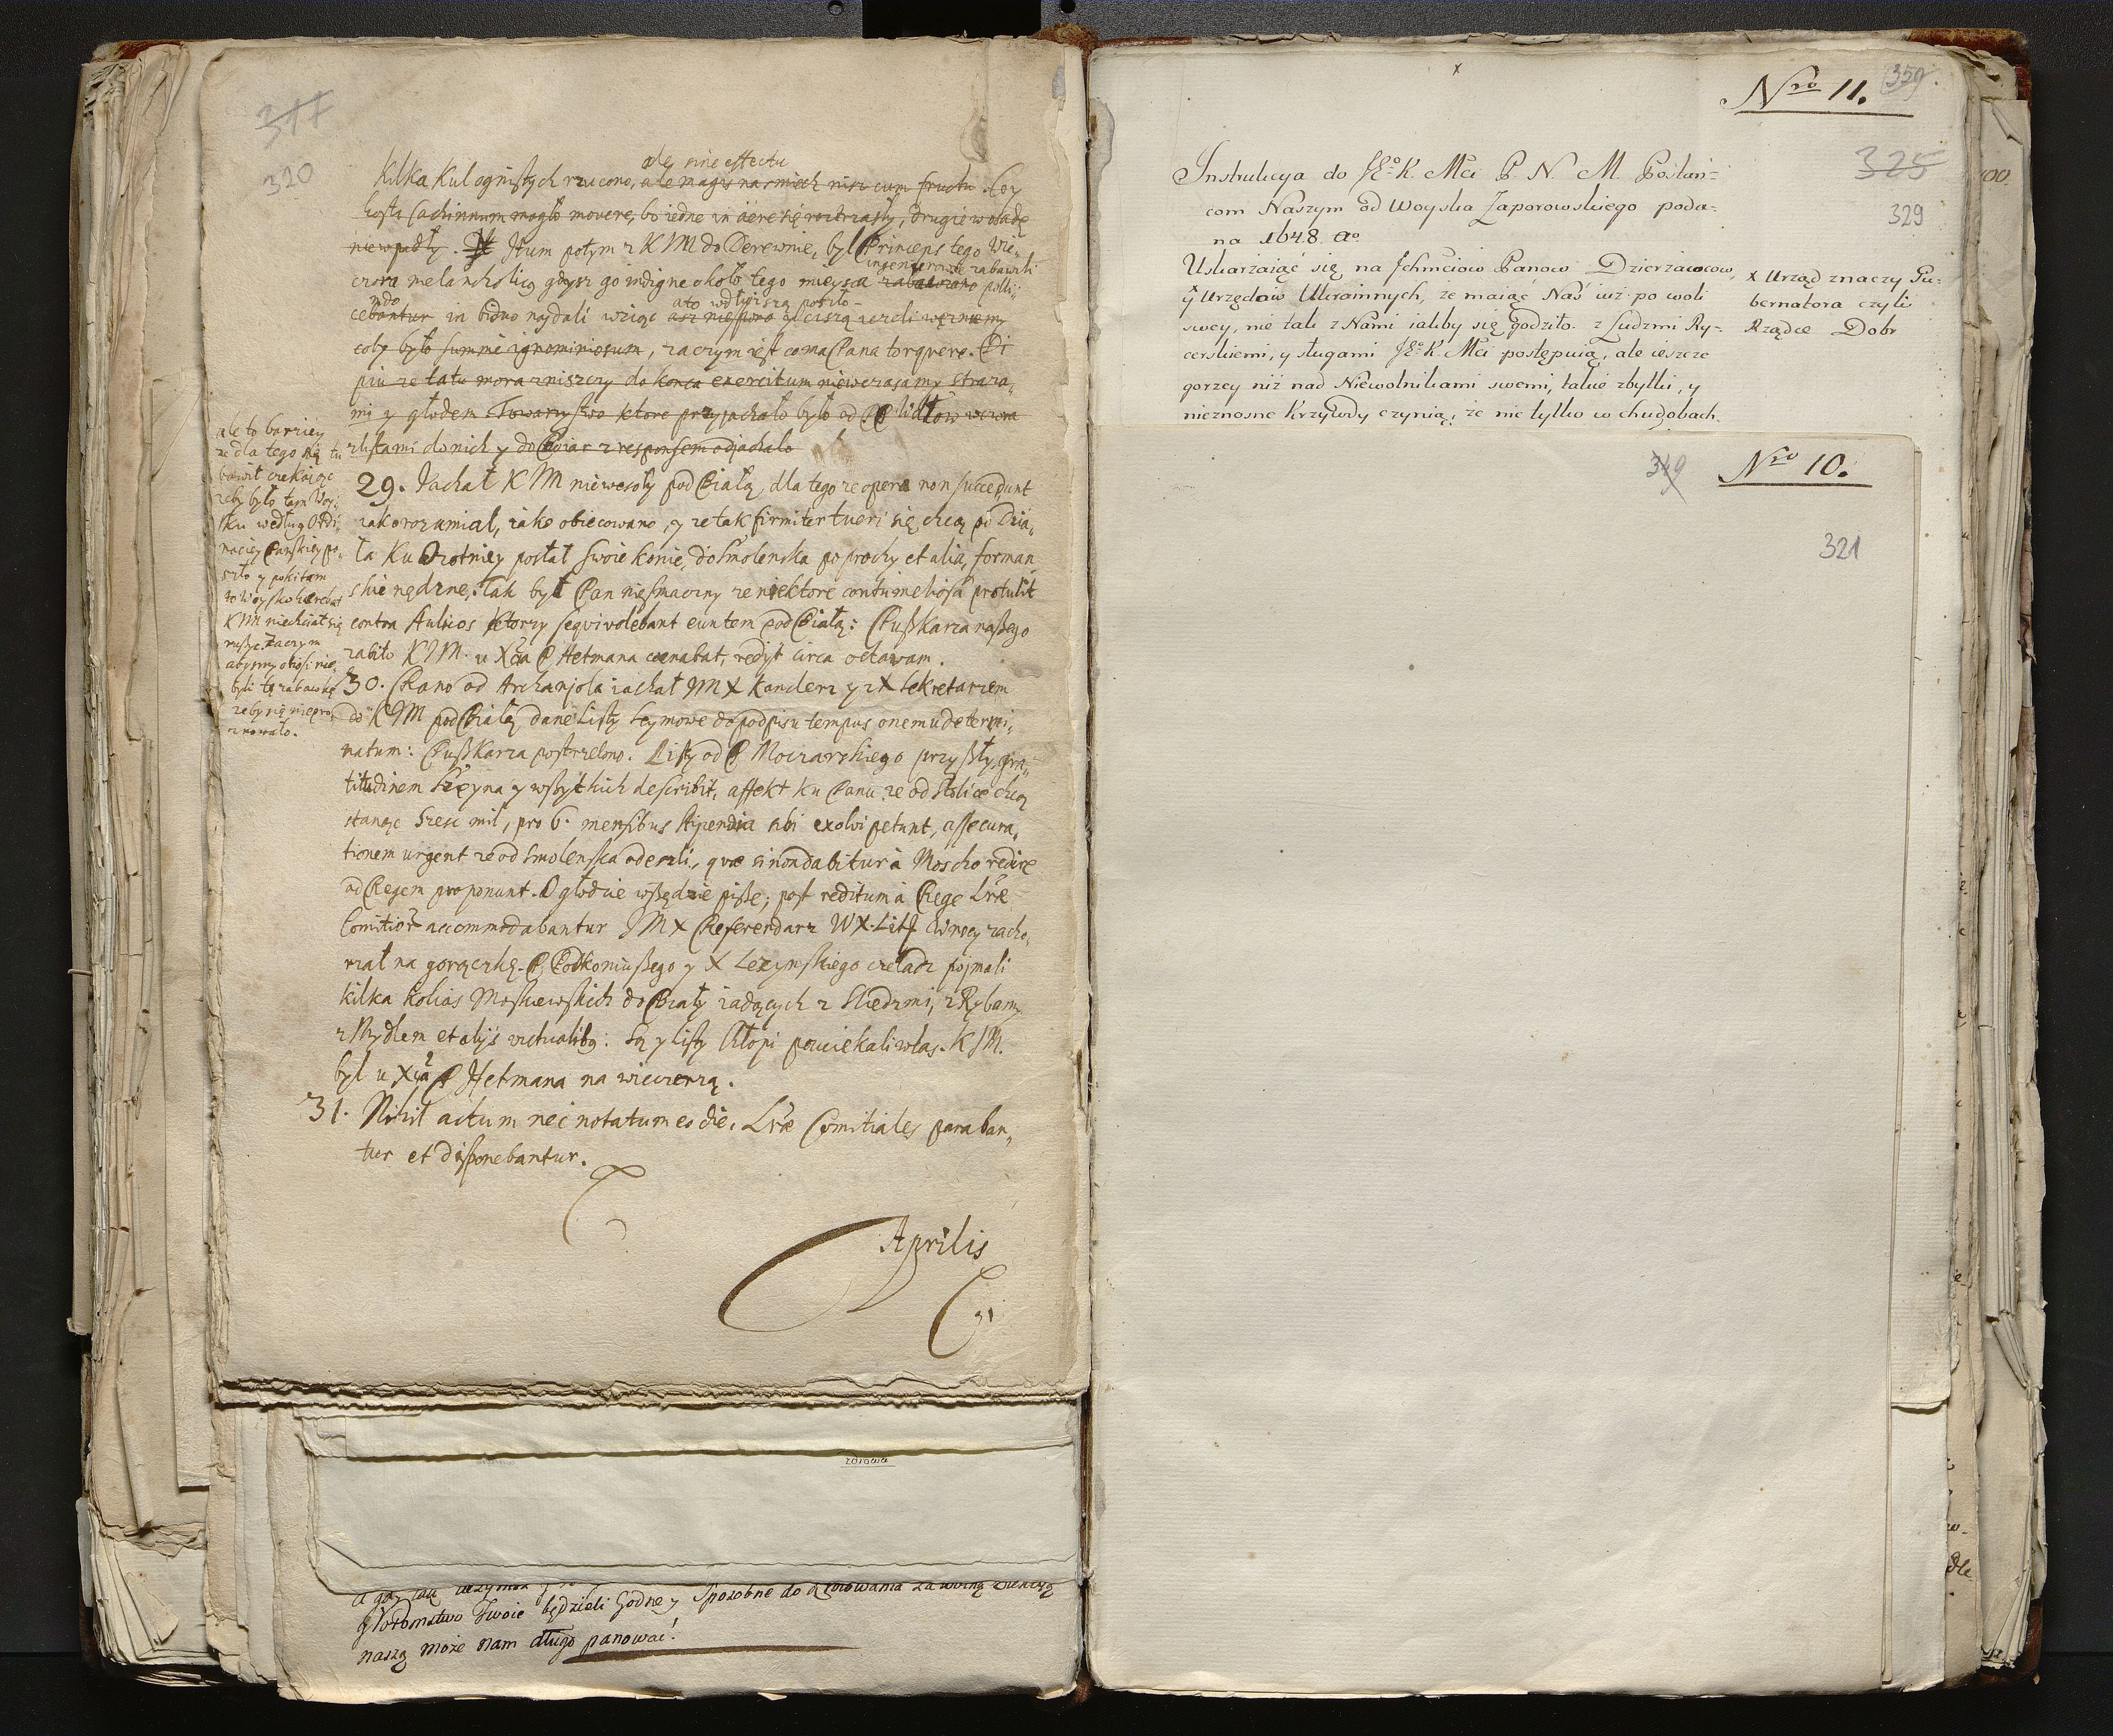 317
320
ale sine effectu
Kilka Kul ognistych rzucono, ale magis na smiech nisi cum fructu. Coy
hosti cachinnum mogło movere, bo iedne in aere się roztrzasły, drugie w wodę
niewpadły. Itum potym z KJM do Derewnie, był Princeps tego wie„
ingenierowie zabawili
czora melancholicg gdysz go indigne około tego mieysca zabawiano polli„
ndo
cebantur in biduo naydali wziąc
coby było summe ignominiosum, zaczym iest co ma Pana torquere. Di
piu ze lata mora zniszczy do konca exercitum niewczasamy straza„
mi y głodem Towarzystwo ktore przyjachało było od
zlistami do nich y do z responsem odjachało
ale to barziey
ze dla tego się tu
bawił czekaiąc
zeby było tam Woy„
sku według Ordi„
naciey Panskiey po„
szło y pokitam
KJM niechciał się
ruszyc. Zaczym
abysmy otiosi nie
byli tę zabawkę
zeby się niepro„
znowało.
29. Jachał KJM niewesoły pod Białą, dla tego ze opera non succedunt
iako rozumiał, iako obiecowano, y ze tak firmiter tueri się chcą po Dzia„
ła Ku posłał swoie konie, do Smolenska po prochy et alia, forman„
skie nędzne. Tak był Pan niesmaczny ze niektore contumeliosa protulit
contra Aulicos ktorzy sequi volebant euntem pod Białą: Puszkarza naszego
zabito KJM. u Xcia P Hetmana coenabat, redyt circa octavam.
30. Rano od Archanjola iachał JMX Kanclerz y z X Sekretarzem
do KJM pod Białą dane Listy Seymowe do podpisu tempus onemu determi„
natum: Puszkarza postrzelono. Listy od P Moczarskiego przyszły, gra„
titudinem Szeyna y wszytkich describit, affekt ku Panu, ze od Stolice chcą
stanąc szesc mil, pro 6. mensibus stipendia sibi exolvi petunt, assecura„
tionem urgent ze od Smolenska odeszli, quæ si non dabitur à Moscho redire
ad Regem proponunt. O głodzie wszędzie pisze; post reditum à Rege Lræ
Comitior accommodabantur JMX Referendarz WX. Litt w nocy zacho„
rzał na gorączkę. P. Podkoniuszego y X Lezynskiego czeladz pojmali
kilka kolias Moskiewskich do Biały iadących z Sledzmi, z Rybamy
z Mydłem et alijs victualibg: Są y listy Chłopi pouciekali w las. KJM.
był u Xcia P Hetmana na wieczerzą.
31. Nihil actum nec notatum eo die, Lræ Comitiales paraban„
tur et disponebantur.
Aprilis
zdrowia
głodomstwo Twoie będzieli godne y sposobne do
naszą może nam długo panować!
x
Nro 11.
359
325
329
Instrukcya do JEo. K. Mći P. N. M. Posłań=
com Naszym od Woyska Zaporowskiego poda=
na 1648. ao
Uskarżaiąc się na Jchmćiow Panow Dzierżawcow,
x
y Urzędow Ukrainnych, że maiąc Nas iuż po woli
swey, nie tak z Nami iakby się godziło z Ludzmi Ry=
cerskiemi, y sługami JEo. K. Mći postępuią, ale ieszcze
gorzey niż nad Niewolnikami swemi, takie zbytki, y
nieznosne Krzywdy czynią, że nie tylko w chudobach
x Urząd znaczy Gu=
bernatora czyli
Rządce Dobr
349
Nro 10.
321